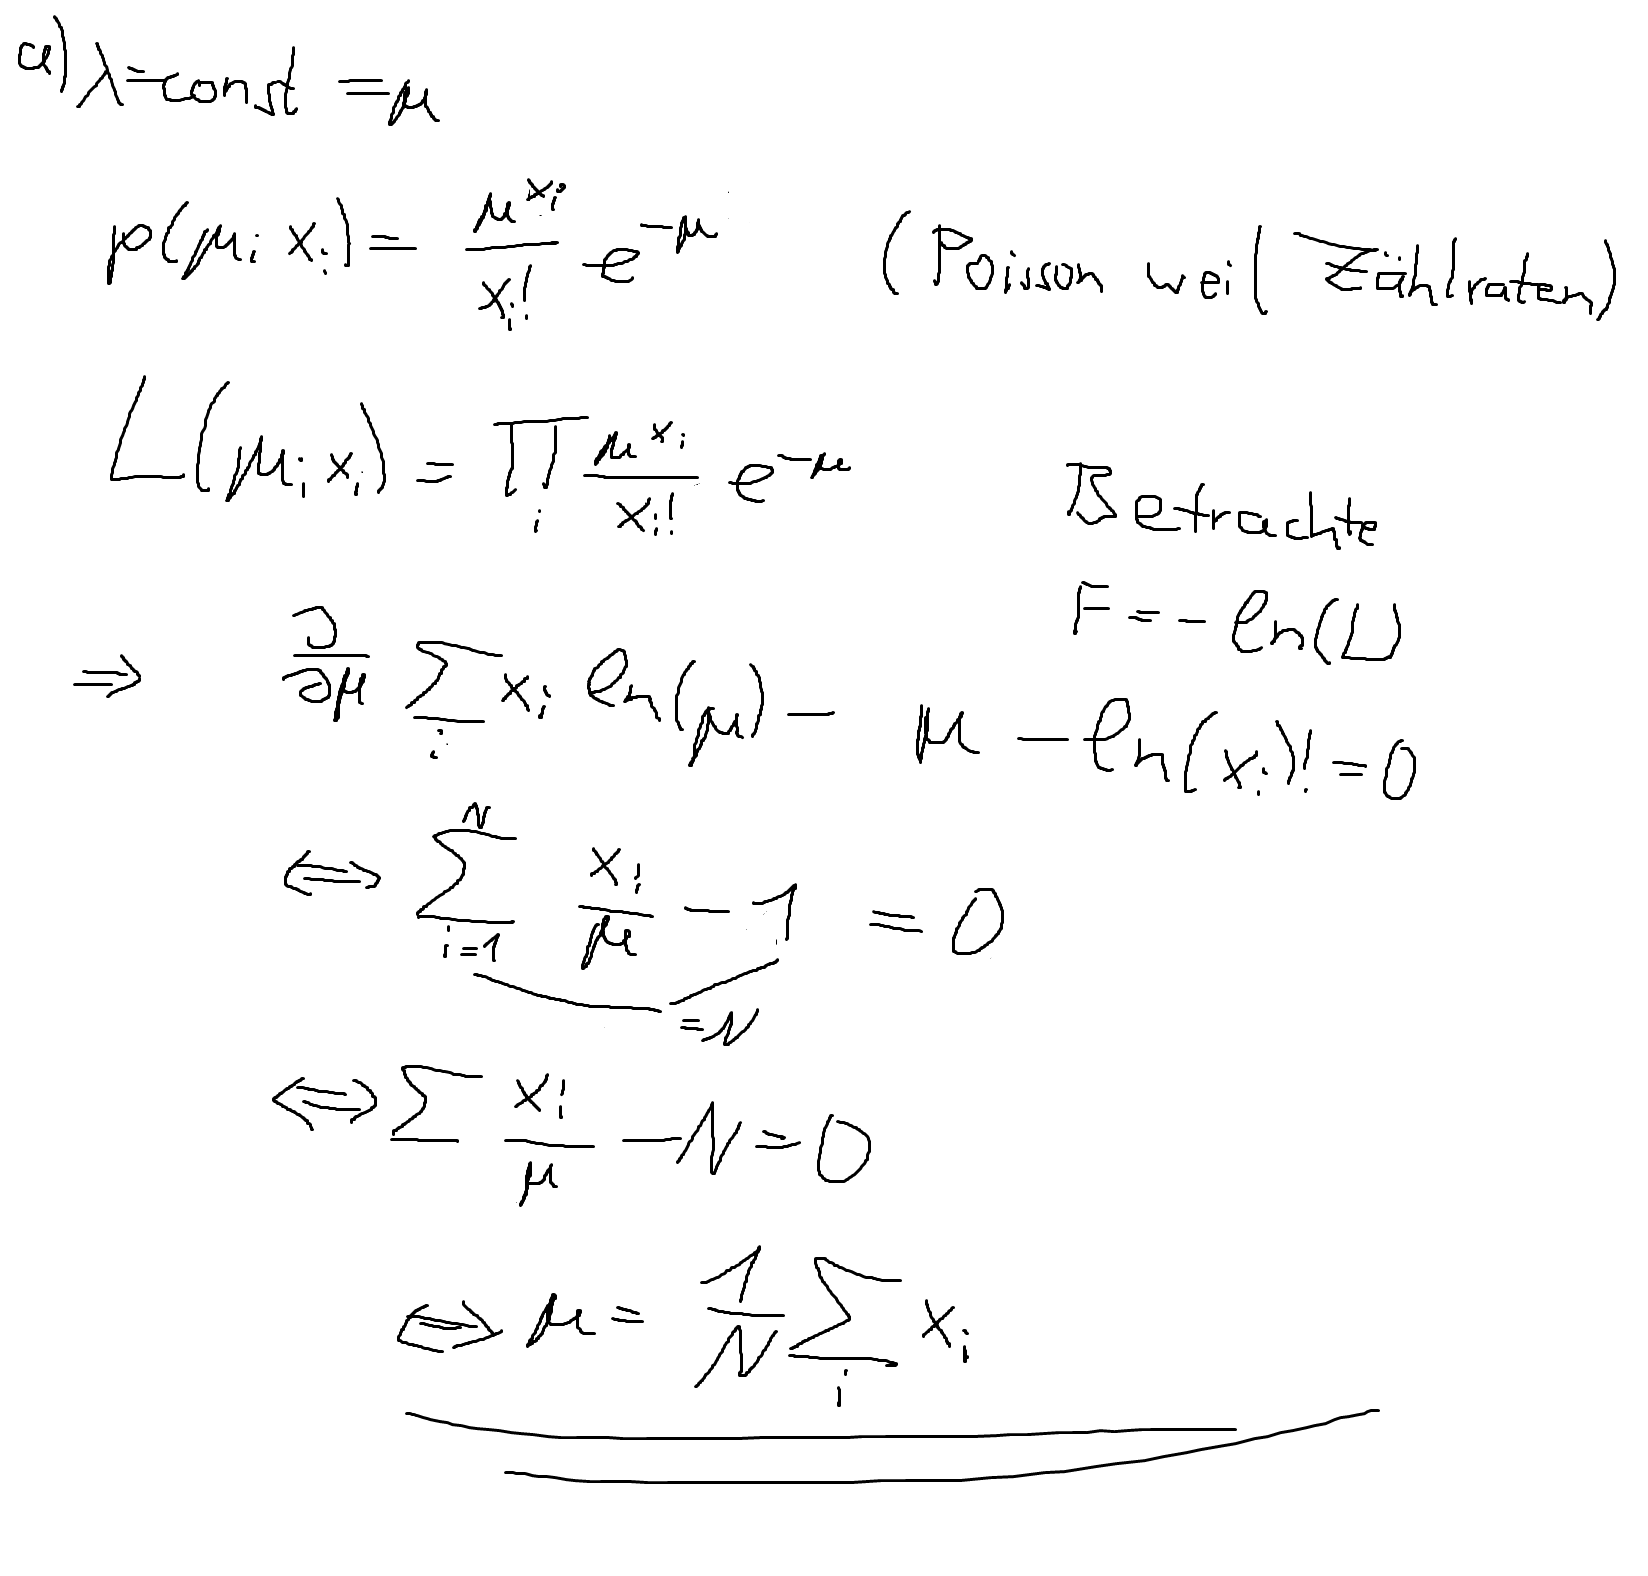 a) λ=const =μ
p(μ; x_i) = μ^{x_i} / x_i! e^{-μ} (Poisson weil Zählraten)
L(μ; x_i) = ∏_i μ^{x_i} / x_i! e^{-μ}
Betrachte
F = - ln(L)
⇒ ∂/∂μ ∑_i x_i ln(μ) - μ - ln(x_i)! = 0
⇔ ∑_{i=1}^{N} x_i/μ - 1 = 0
=N
⇔ ∑ x_i/μ - N = 0
⇔ μ = 1/N ∑_i x_i